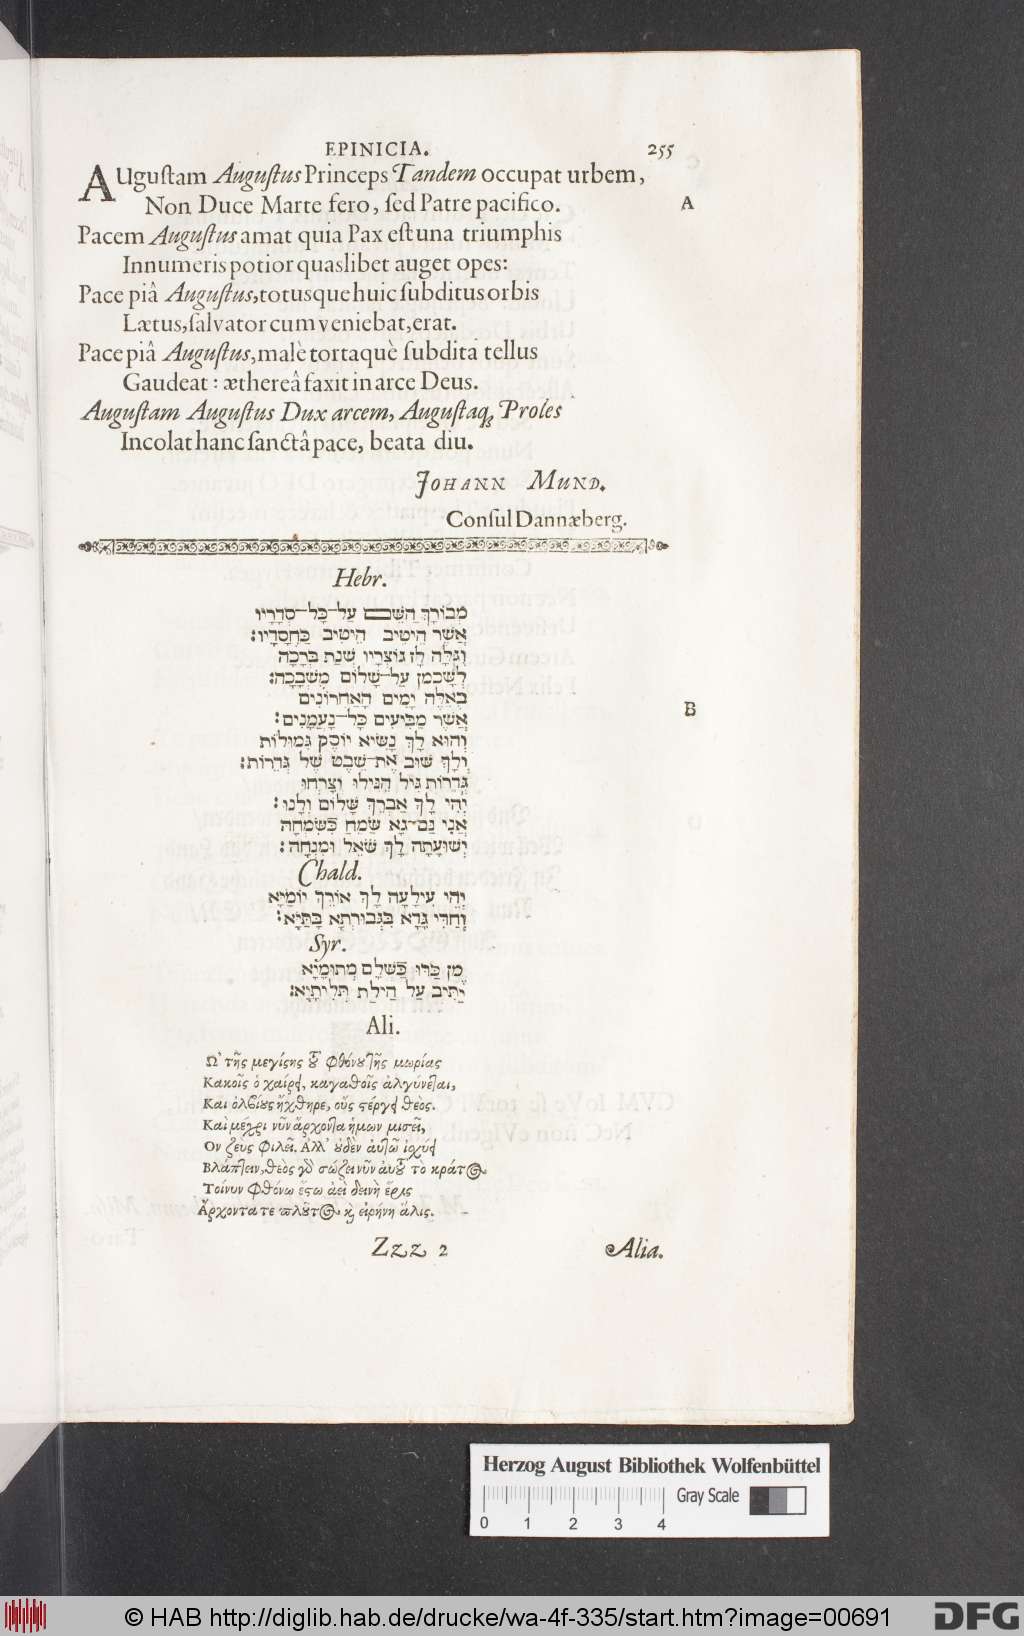 EPINICIA. 255
AUguſtam Auguſtus Princeps Tandem occupat urbem,
Non Duce Marte fero, ſed Patre pacifico.
A
Pacem Auguſtus amat quia Pax eſt una triumphis
Innumeris potior quaslibet auget opes:
Pace piâ Auguſtus, totusque huic ſubditus orbis
Lætus, ſalvator cum veniebat, erat.
Pace piâ Auguſtus, malè tortaquè ſubdita tellus
Gaudeat: æthereâ faxit in arce Deus.
Auguſtam Auguſtus Dux arcem, Auguſtaq; Proles
Incolat hanc ſanctâ pace, beata diu.
JOHANN MUND.
Conſul Dannæberg.
Hebr.
מְבוֹרָךְ הַשֵּׁם עַל־כָּל־סְדָרָיו
אֲשֶׁר הֵיטִיב הֵיטִיב כַּחֲסָדָיו:
שְׁנַת בְּרָכָה
עַל־שָׁלוֹם
בְּאֵלֶּה יָמִים הָאַחֲרוֹנִים
אֲשֶׁר מַבִּיעִים כָּל־נַעֲמָנִים:
B
וְהוּא לָךְ נָשִׂיא יוֹסֵף גְּמוּלוֹת
וְלָךְ שׁוּב אֶת־שֵׁבֶט שֶׁל גְּדֵרוֹת:
גְּדֵרוֹת גִּיל
יְהִי לָךְ אַבְרֵךְ שָׁלוֹם וְלָנוּ:
אֲנִי שָׂמֵחַ כְּשִׂמְחָה
יְשׁוּעָתָה לָּךְ שֹׁאֵל וּמִנְחָה:
Chald.
יְהֵי לָךְ אוֹרֵךְ יוֹמַיָּא
Syr.
מִן
יַתִּיב עַל
Ali.
Ὦ τῆς μεγίϛης ȣ̃ φθόνȣ τῆς μωρίας
Κακοῖς ὁ χαίρει, κἀγαθοῖς ἀλγύνεται,
Καὶ ὀλβίȣς ἤχθηρε, οὓς ϛέργει θεός.
Καὶ μέχρι νῦν ἄρχοντα ἡμων μισεῖ,
Ὃν ζεὺς φιλεῖ. Ἀλλ' ȣδὲν ἀυτῶ ἰσχύει
Βλάπτειν, θεὸς γὸ σώζει νῦν ἀυȣ͂ τὸ κράτος
Τοίνυν φθόνω ἔϛω ἀεὶ δεινὴ ἔρις
Ἄρχοντα τε πλȣ͂τος κỳ εἰρήνη ἅλις.
Zzz 2 Alia.
Herzog August Bibliothek Wolfenbüttel
Gray Scale
0 1 2 3 4
© HAB http://diglib.hab.de/drucke/wa-4f-335/start.htm?image=00691
DFG